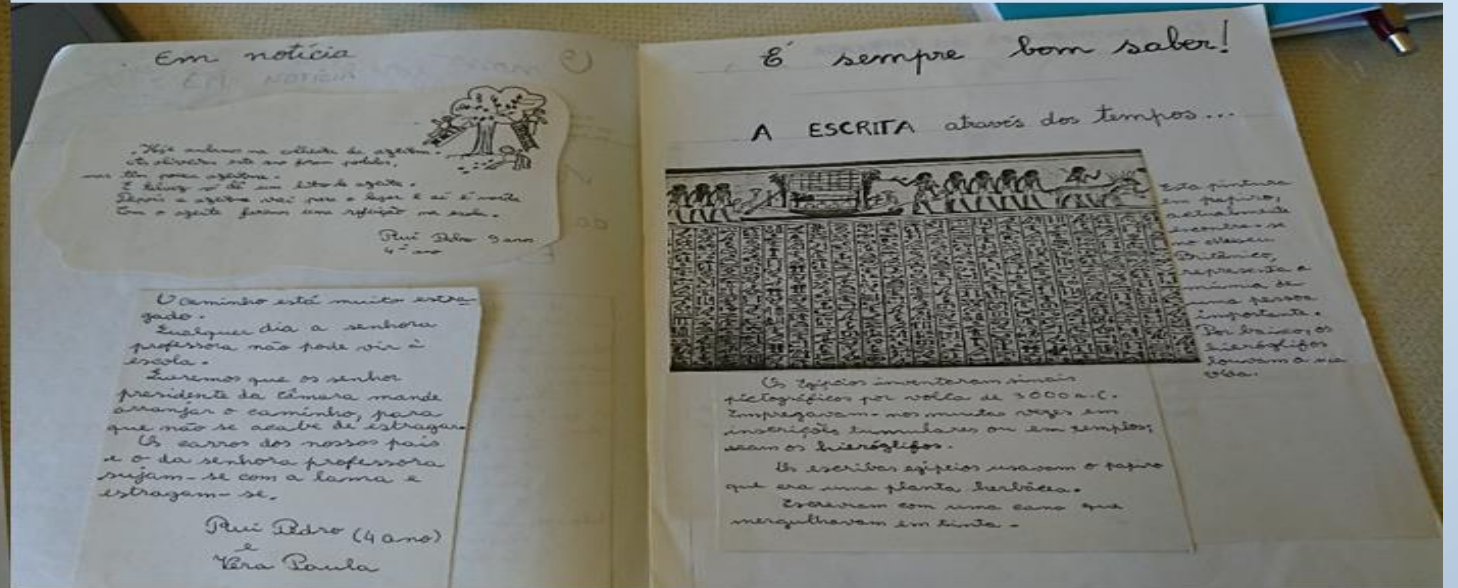 Em notícia
Hoje andamos na colheita da azeitona.
As oliveiras este ano foram podadas,
mas têm pouca azeitona.
E talvez só dê um litro de azeite.
Depois a azeitona vai para o lagar e aí é moída
Com o azeite faremos uma refeição na escola.
Rui Pedro 9 anos
4º ano
O caminho está muito estra
gado.
Qualquer dia a senhora
professora não pode vir à
escola.
Queremos que os senhor
presidente da Câmara mande
arranjar o caminho, para
que não se acabe de estragar.
Os carros dos nossos pais
e o da senhora professora
sujam-se com a lama e
estragam-se.
Rui Pedro (4 ano)
e
Vera Paula
É sempre bom saber!
A ESCRITA através dos tempos...
Esta pintura
em papiro,
actualmente
encontra-se
no Museu
Britânico,
representa a
múmia de
uma pessoa
importante.
Por baixo, os
hieróglifos
louvam a sua
vida.
Os Egípcios inventaram sinais
pictográficos por volta de 3000 a.C.
Empregavam-nos muitas vezes em
inscrições tumulares ou em templos;
eram os hieróglifos.
Os escribas egípcios usavam o papiro
que era uma planta herbácea.
Escreviam com uma cana que
mergulhavam em tinta.